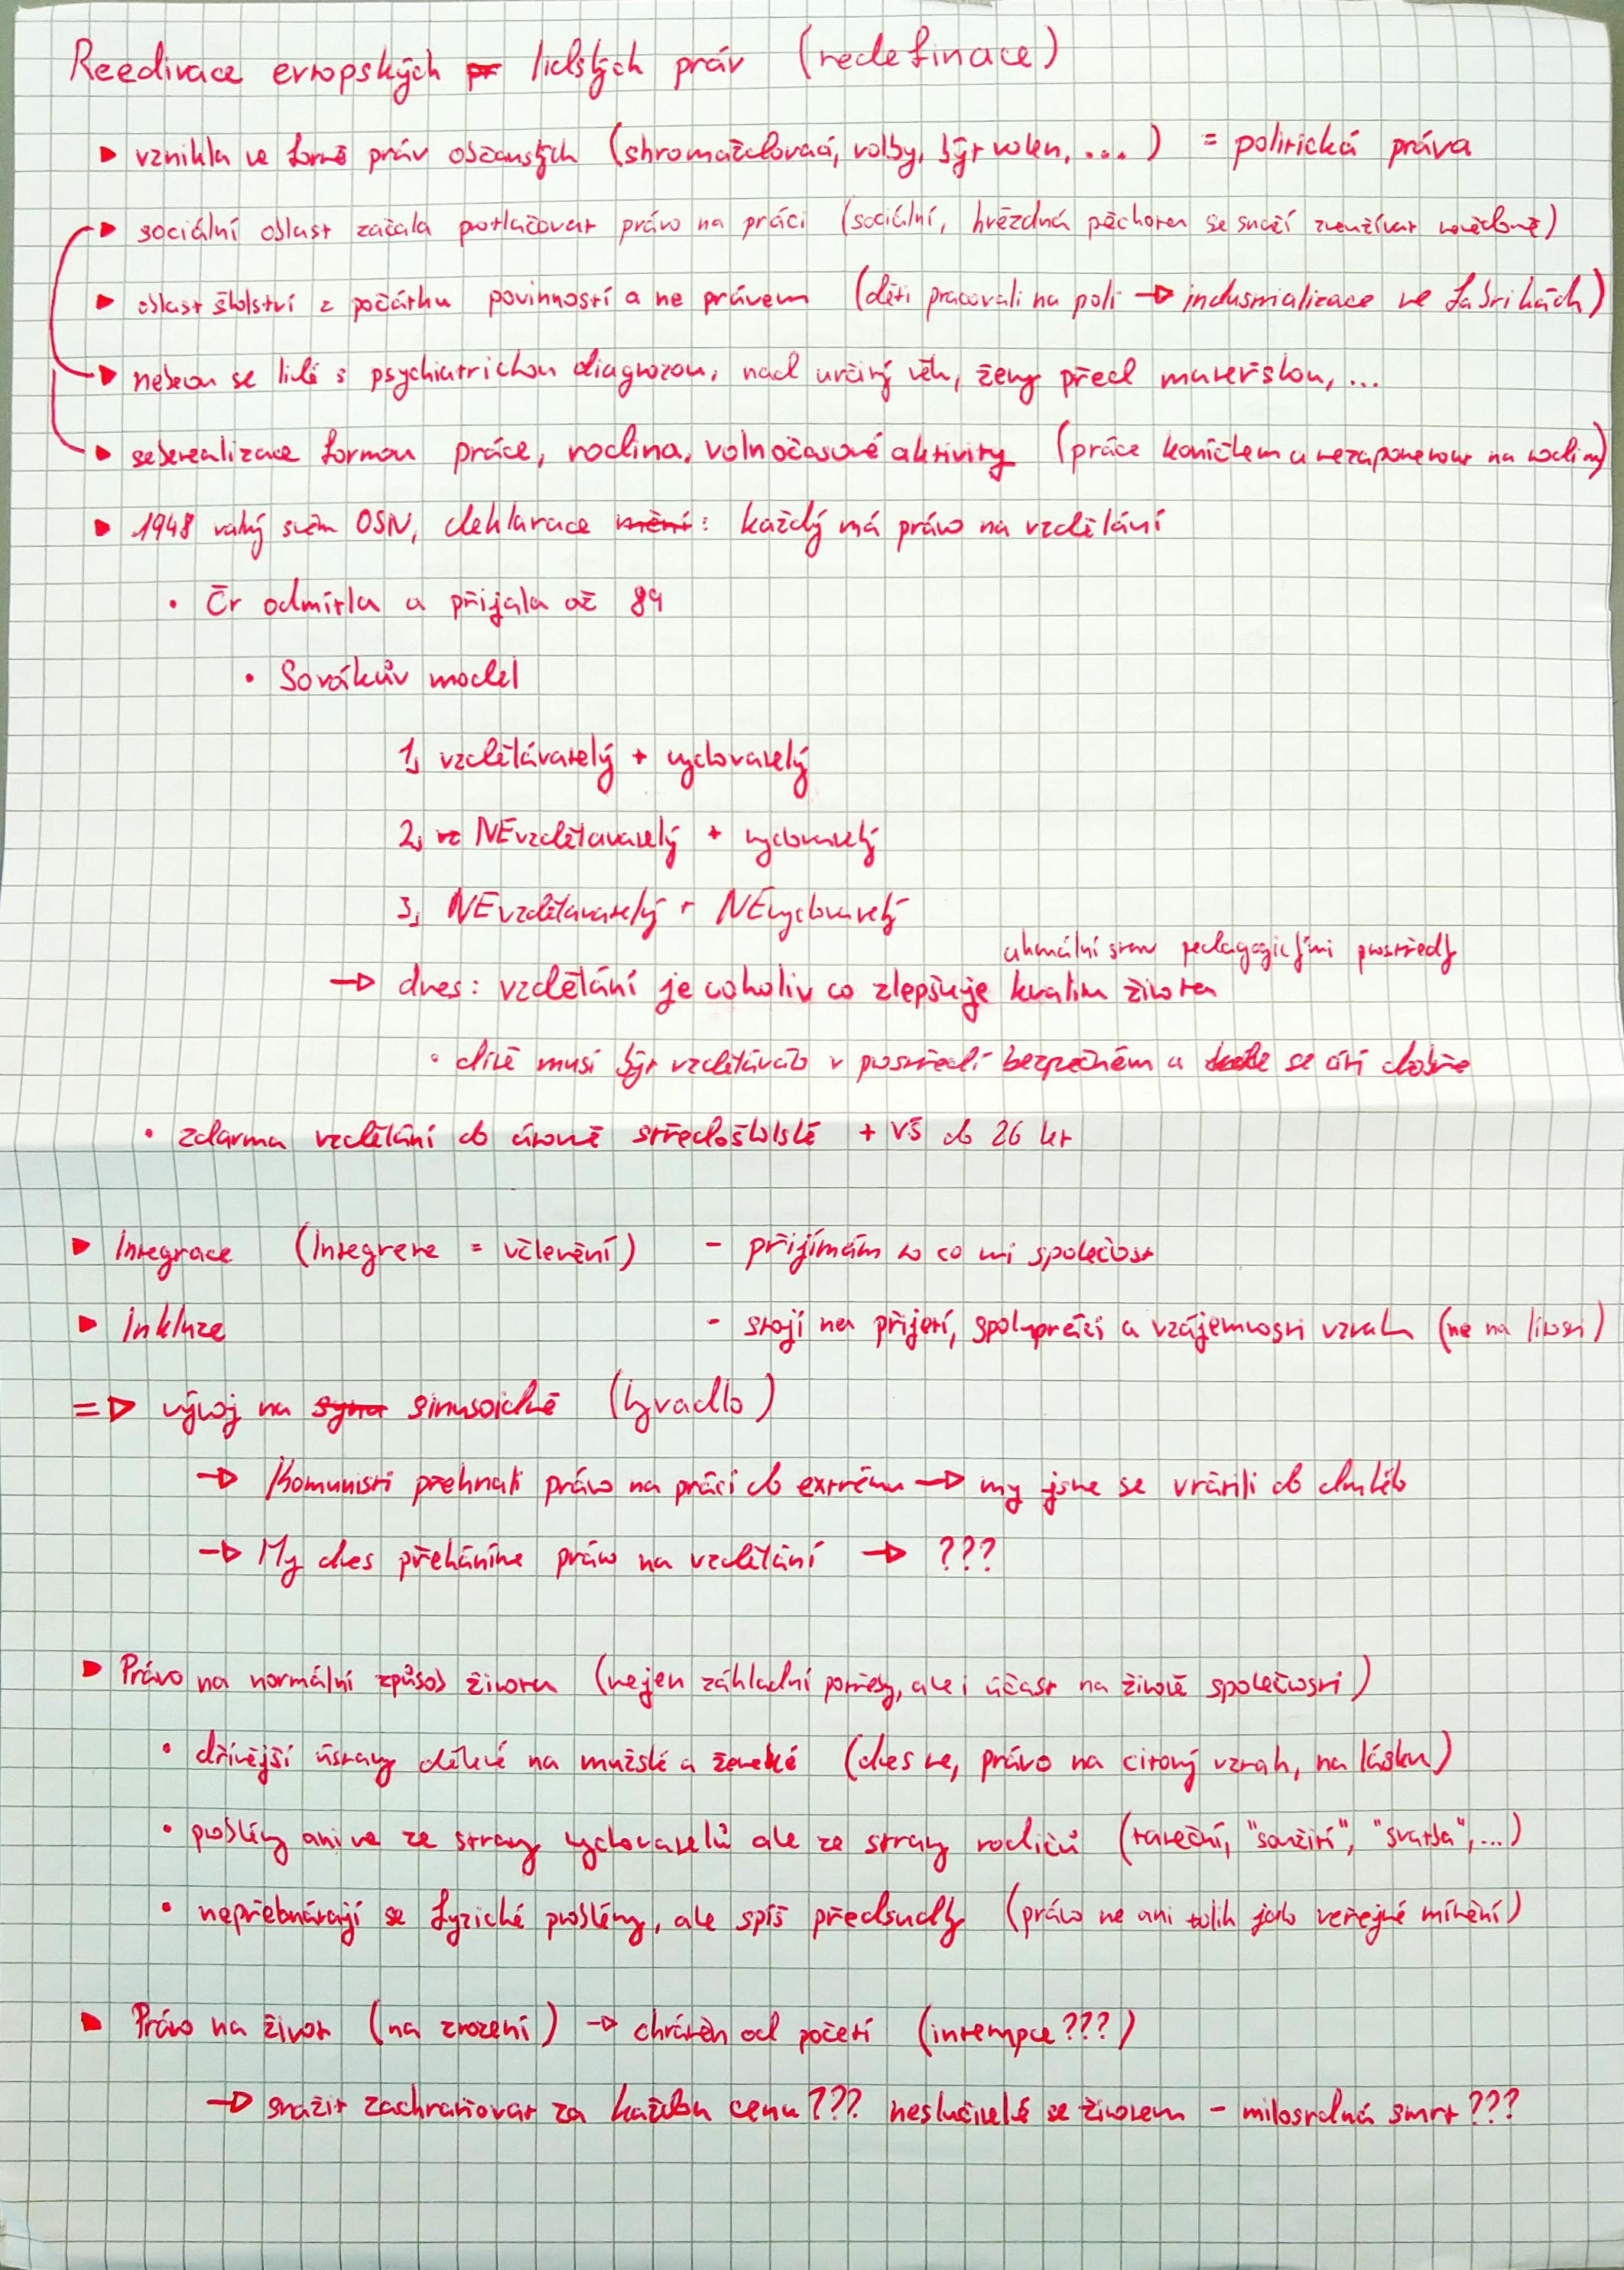 Reedivace evropských lidských práv (redefinace)
▶ vznikla ve formě práv občanských (shromažďovací, volby, být volen, ....) = politická práva
▶ sociální oblast začala potlačovat právo na práci (sociální, hvězdná pěchota se snaží zneužívat
▶ oblast školství z počátku povinností a ne právem (děti pracovali na poli → industrializace ve fabrikách)
▶ neberou se lidi s psychiatrickou diagnozou, nad určitý věk, ženy před mateřskou, ...
▶ seberealizace formou práce, rodina, volnočasové aktivity (práce koníčkem a nezapomenout na rodinu)
▶ 1948 valný sněm OSN, deklarace: každý má právo na vzdělání
• Čr odmítla a přijala až 89
• Sovákův model
1, vzdělávatelý + vychovatelý
2, NEvzdělavatelý + vychovatelý
3, NEvzdělavatelý + NEvychovatelý
aktuální stav pedagogickými prostředky
→ dnes: vzdělání je cokoliv co zlepšuje kvalitu života
• dítě musí být vzděláváno v prostředí bezpečném a se cítí dobře
• zdarma vzdělání do úrovně středoškolské + VŠ do 26 let
▶ Integrace (Integrere = včlenění) - přijímám to co mi společnost
▶ Inkluze - stojí na přijetí, spolupráci a vzájemnosti vztahu (ne na lítosti)
=> vývoj na sinusoidě (kyvadlo)
→ Komunisti přehnali právo na práci do extrému → my jsme se vrátili do
→ My dnes přeháníme právo na vzdělání → ???
▶ Právo na normální způsob života (nejen základní potřeby, ale i účast na životě společnosti)
• dřívější ústavy dělivé na mužské a ženské (dnes ne, právo na citový vztah, na lásku)
• problémy ani ne ze strany vychovatelů ale ze strany rodičů (taneční, "soužití", "svatba", ...)
• nepřebnárají se fyzické problémy, ale spíš předsudky (právo ne ani tolik jako veřejné mínění)
▶ Právo na život (na zrození) → chráněn od početí (interupce???)
→ snažit zachraňovat za každou cenu??? neslučitelé se životem - milosrdná smrt???